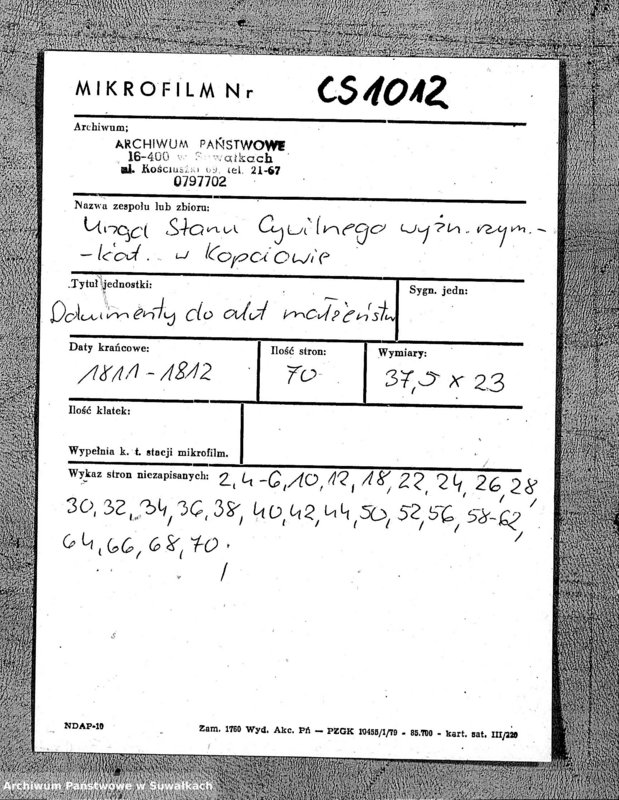 MIKROFILM Nr CS1012
Archiwum;
ARCHIWUM PAŃSTWOWE
16-400 w Suwałkach
ul. Kościuszki 69, tel. 21-67
0797702
Nazwa zespołu lub zbioru:
Urząd Stanu Cywilnego wyzn. rzym.-
-kat. w Kopciowie
Tytuł jednostki:
Sygn. jedn:
Dokumenty do akt małżeństw
Daty krańcowe:
1811-1812
Ilość stron:
70
Wymiary:
37,5 x 23
Ilość klatek:
Wypełnia k. t. stacji mikrofilm.
Wykaz stron niezapisanych: 2,4-6,10,12,18,22,24,26,28,
30,32,34,36,38,40,42,44,50,52,56,58-62,
64,66,68,70.
NDAP-10
Zam. 1760 Wyd. Akc. Pń — PZGK 10455/1/79 - 85.700 - kart. sat. III/220
Archiwum Państwowe w Suwałkach